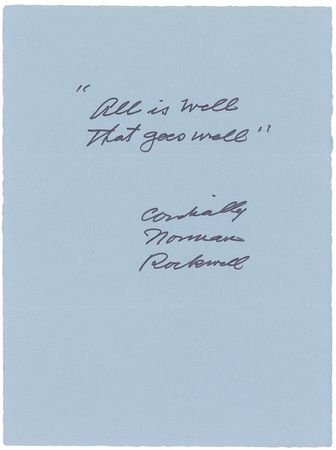 "All is well
That goes well"
Cordially
Norman
Rockwell